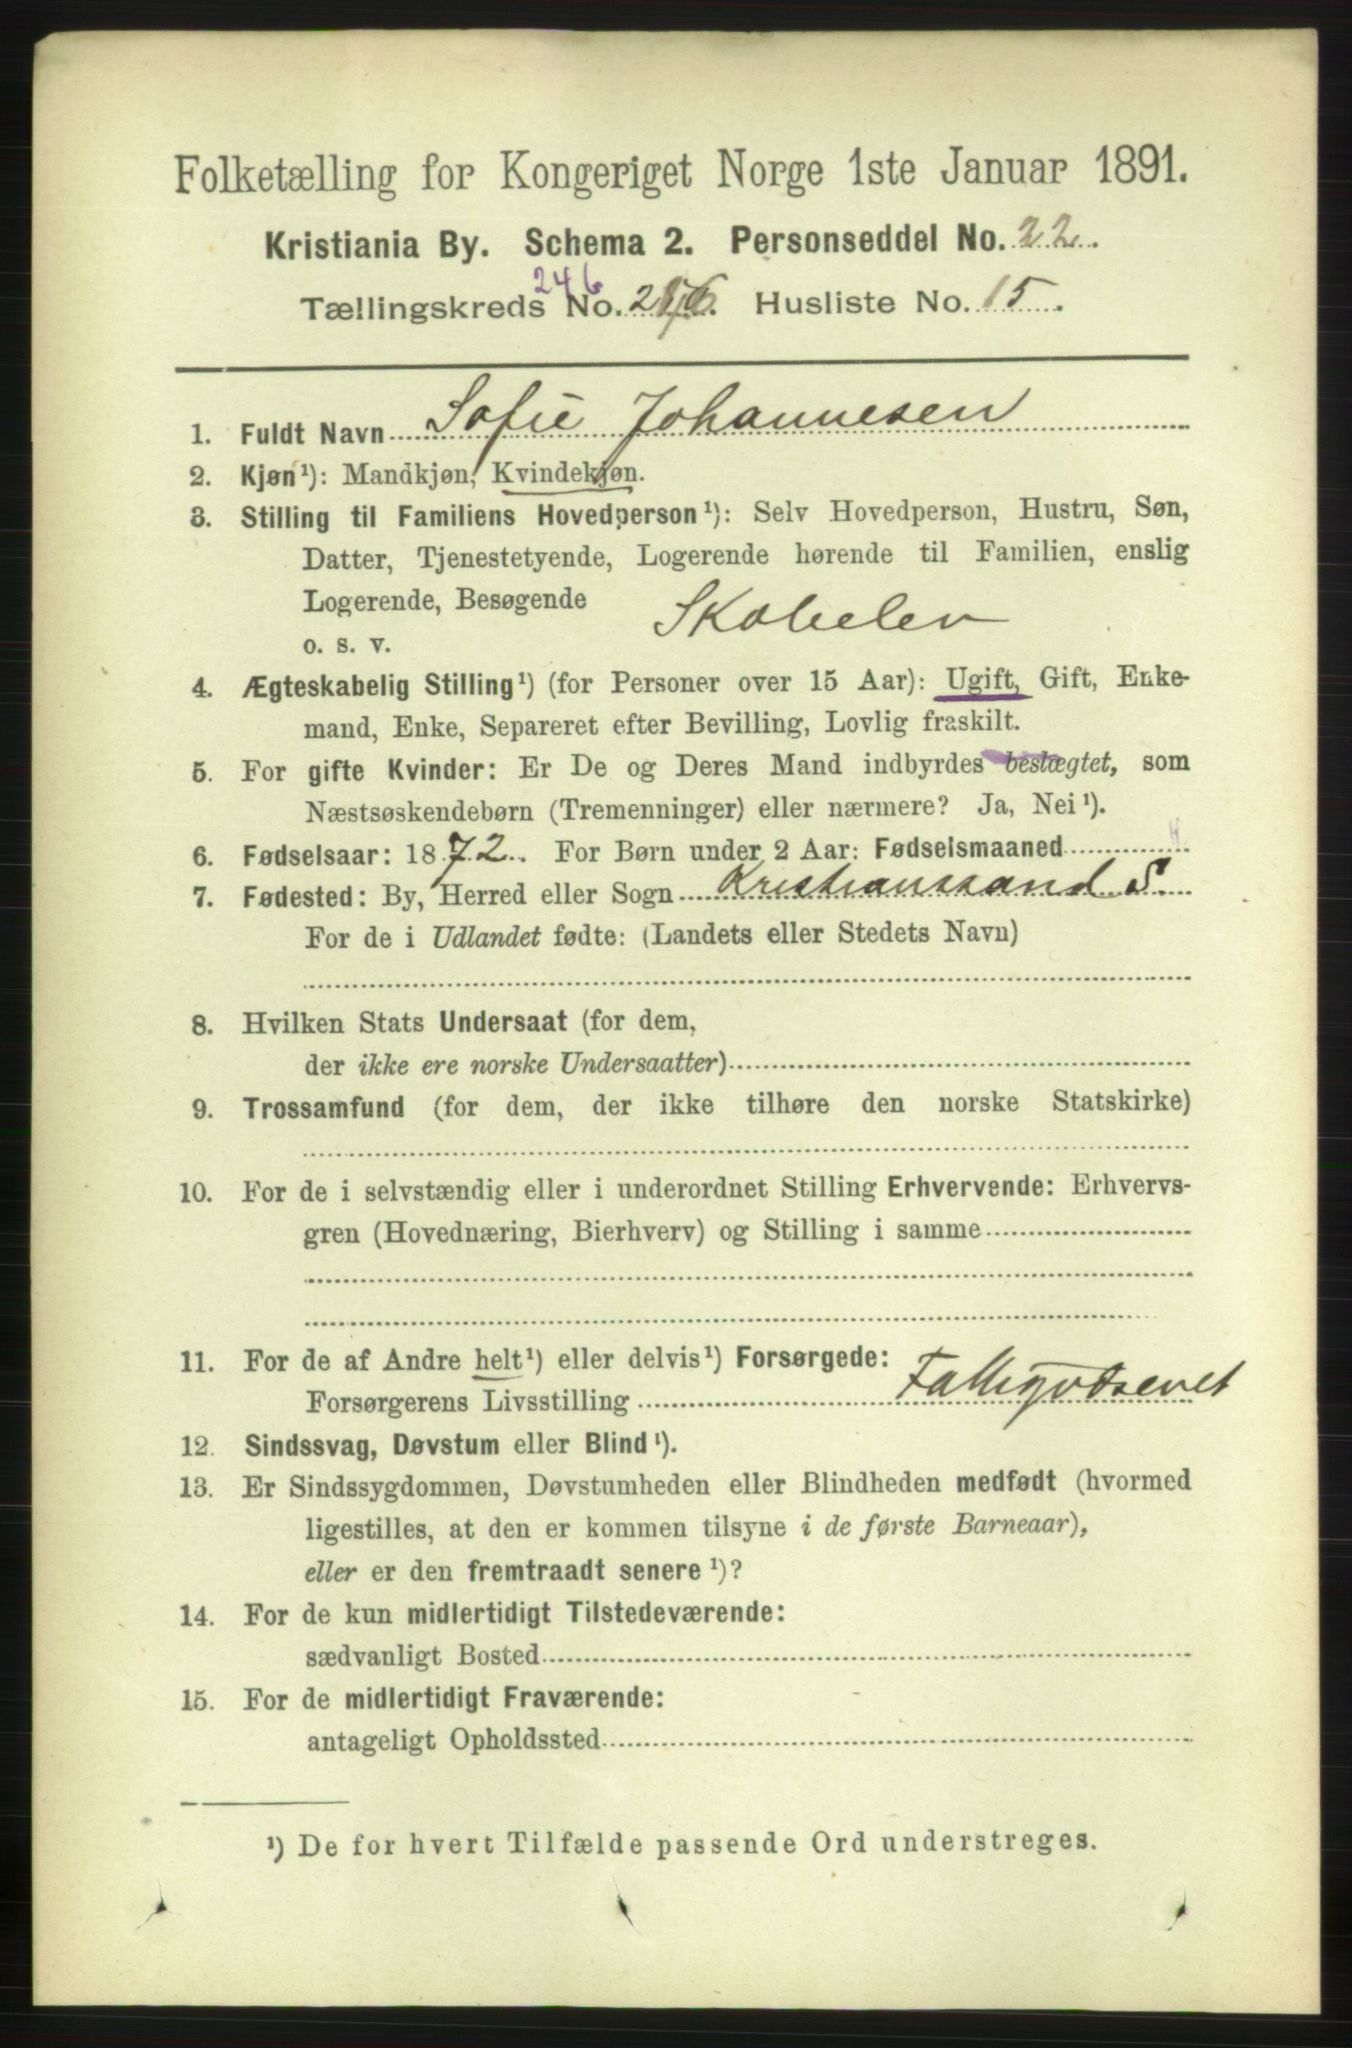 Folketælling for Kongeriget Norge 1ste Januar 1891.
Kristiania By. Schema 2. Personseddel No. 22.
246
Tællingskreds No. 216. Husliste No. 15.
1. Fuldt Navn Sofie Johannesen
2. Kjøn¹): Mandkjøn, Kvindekjøn.
3. Stilling til Familiens Hovedperson¹): Selv Hovedperson, Hustru, Søn,
Datter, Tjenestetyende, Logerende hørende til Familien, enslig
Logerende, Besøgende
Skoleelev
o. s. v.
4. Ægteskabelig Stilling¹) (for Personer over 15 Aar): Ugift, Gift, Enke-
mand, Enke, Separeret efter Bevilling, Lovlig fraskilt.
5. For gifte Kvinder: Er De og Deres Mand indbyrdes beslægtet, som
Næstsøskendebørn (Tremenninger) eller nærmere? Ja, Nei¹).
6. Fødselsaar: 1872. For Børn under 2 Aar: Fødselsmaaned
7. Fødested: By, Herred eller Sogn Kristianssand S.
For de i Udlandet fødte: (Landets eller Stedets Navn)
8. Hvilken Stats Undersaat (for dem,
der ikke ere norske Undersaatter)
9. Trossamfund (for dem, der ikke tilhøre den norske Statskirke)
10. For de i selvstændig eller i underordnet Stilling Erhvervende: Erhvervs-
gren (Hovednæring, Bierhverv) og Stilling i samme
11. For de af Andre helt¹) eller delvis¹) Forsørgede:
Forsørgerens Livsstilling
12. Sindssvag, Døvstum eller Blind¹).
13. Er Sindssygdommen, Døvstumheden eller Blindheden medfødt (hvormed
ligestilles, at den er kommen tilsyne i de første Barneaar),
eller er den fremtraadt senere¹)?
14. For de kun midlertidigt Tilstedeværende:
sædvanligt Bosted
15. For de midlertidigt Fraværende:
antageligt Opholdssted
¹) De for hvert Tilfælde passende Ord understreges.